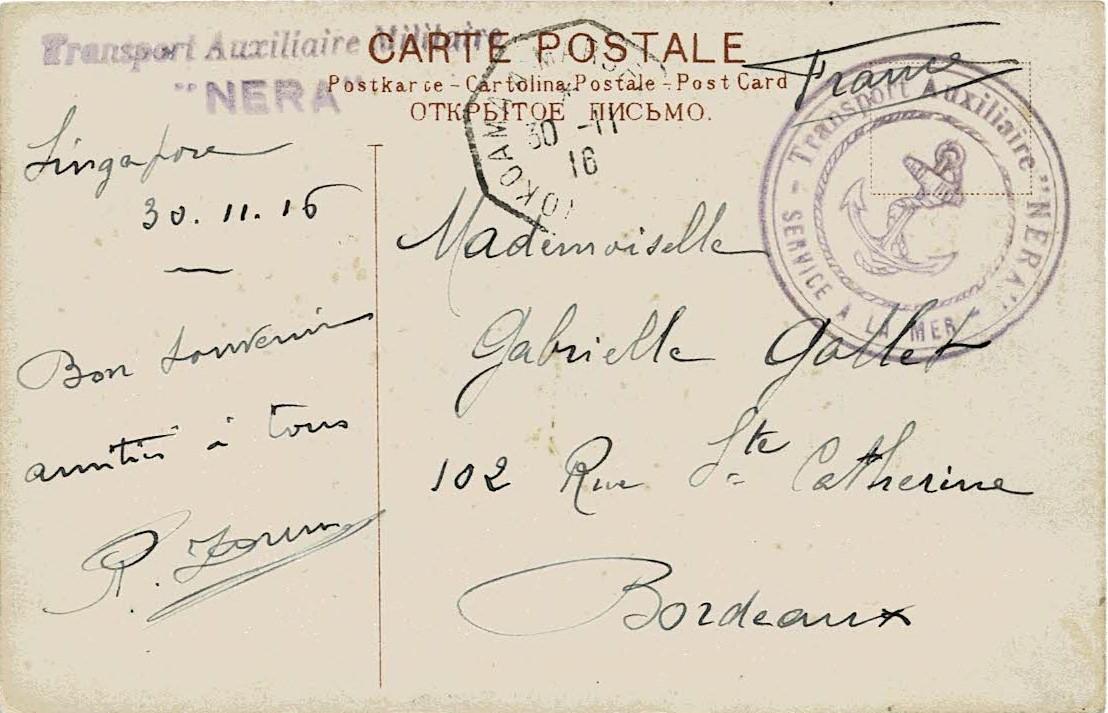 Transport Auxiliaire Militaire
"NERA"
CARTE POSTALE
Postkarte - Cartolina Postale - Post Card
ОТКРЫТОЕ ПИСЬМО.
France
YOKOHAMA A MARSEILLE
30 -11
16
- Transport Auxiliaire "NERA" -
SERVICE A LA MER
Singapore
30.11.16
Bon souvenir
amitiés à tous
Mademoiselle
Gabrielle Gallet
102 Rue Ste Catherine
Bordeaux